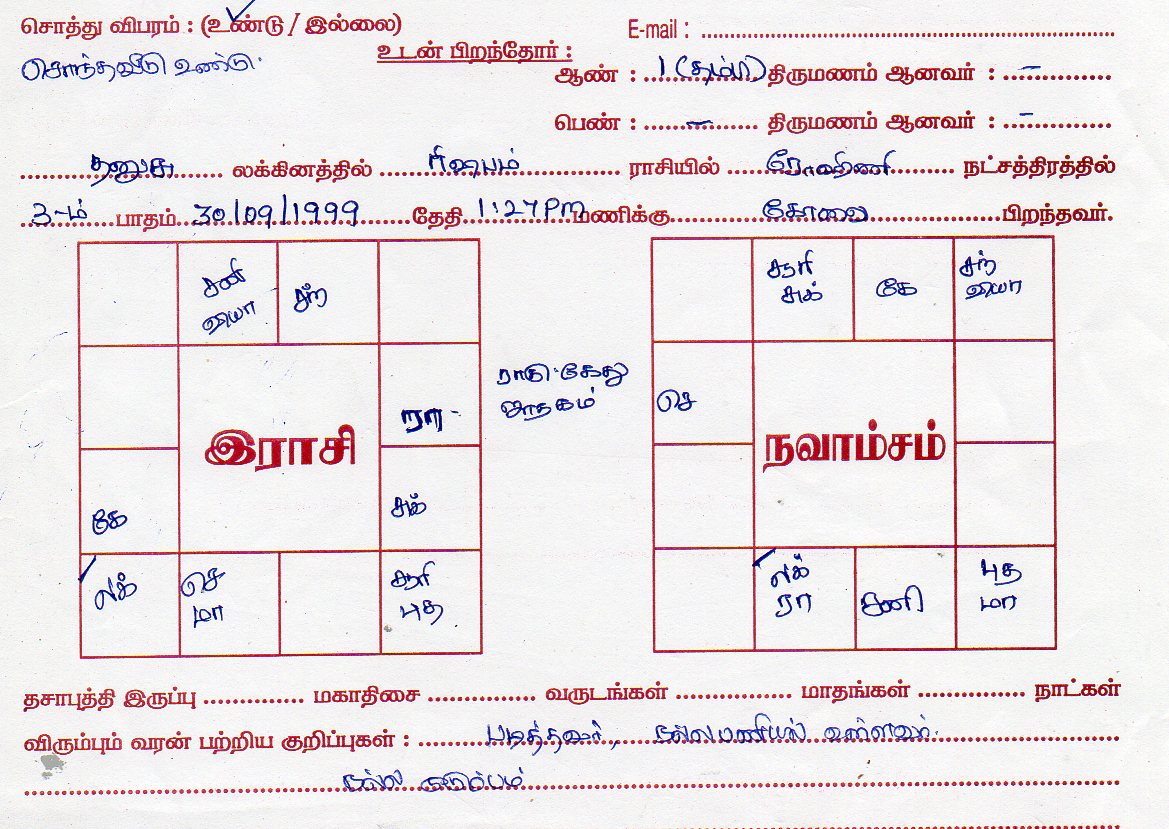 சொத்து விபரம் : (உண்டு / இல்லை)
E-mail :
சொந்தவீடு உண்டு.
உடன் பிறந்தோர் :
ஆண் : 1 (தம்பி) திருமணம் ஆனவர் : –
பெண் : – திருமணம் ஆனவர் : –
தனுசு லக்கினத்தில் ரிஷபம் ராசியில் ரோஹிணி நட்சத்திரத்தில்
3-ம் பாதம் 30/09/1999 தேதி 1:27 Pm மணிக்கு கோவை பிறந்தவர்.
சனி
வியா
சந்
ரா
இராசி
கே
சுக்
லக்
செ
மா
சூரி
புத
ராகு கேது
ஜாதகம்
சூரி
சுக்
கே
சந்
வியா
செ
நவாம்சம்
லக்
ரா
சனி
புத
மா
தசாபுத்தி இருப்பு மகாதிசை வருடங்கள் மாதங்கள் நாட்கள்
விரும்பும் வரன் பற்றிய குறிப்புகள் : படித்தவர், நல்ல பணியில் உள்ளவர்.
நல்ல குடும்பம்